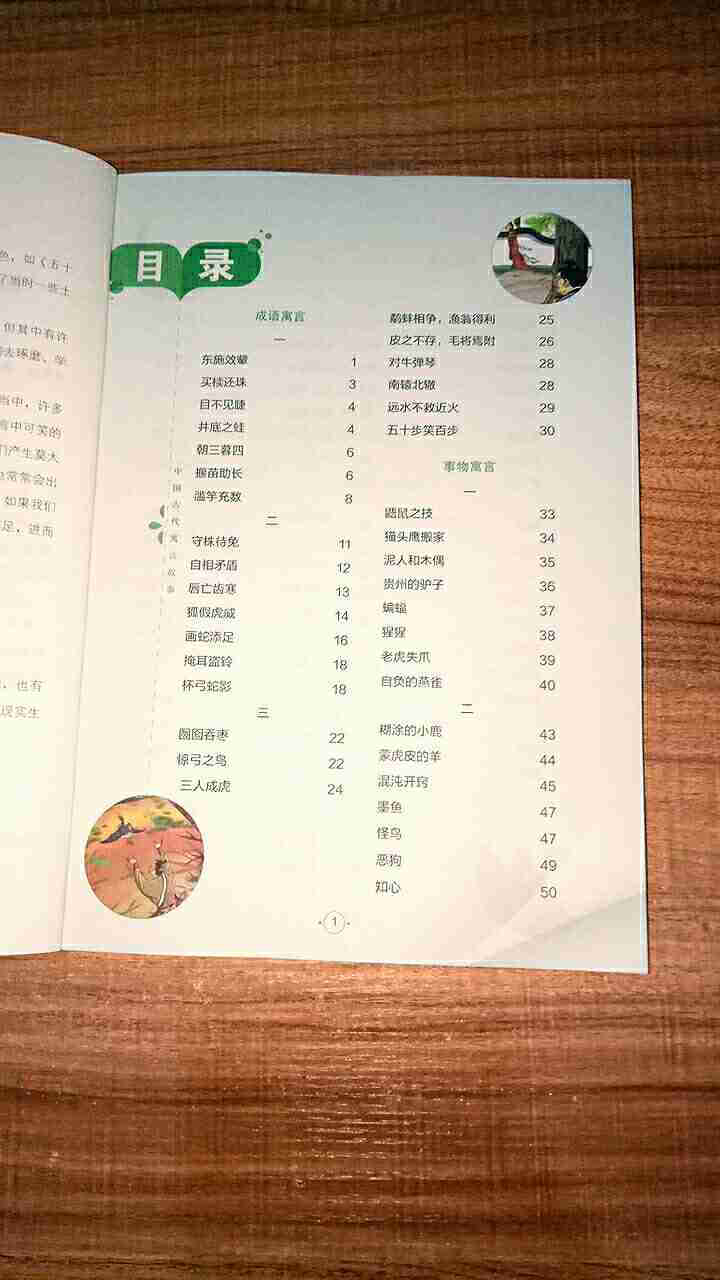 色，如《五十
了当时一些士
但其中有许
去琢磨、学
当中，许多
中可笑的
们产生莫大
也常常会出
如果我们
足，进而
，也有
现实生
目录
中国古代寓言故事
成语寓言
一
东施效颦 1
买椟还珠 3
目不见睫 4
井底之蛙 4
朝三暮四 6
揠苗助长 6
滥竽充数 8
二
守株待兔 11
自相矛盾 12
唇亡齿寒 13
狐假虎威 14
画蛇添足 16
掩耳盗铃 18
杯弓蛇影 18
三
囫囵吞枣 22
惊弓之鸟 22
三人成虎 24
鹬蚌相争，渔翁得利 25
皮之不存，毛将焉附 26
对牛弹琴 28
南辕北辙 28
远水不救近火 29
五十步笑百步 30
事物寓言
一
鼯鼠之技 33
猫头鹰搬家 34
泥人和木偶 35
贵州的驴子 36
蝙蝠 37
猩猩 38
老虎失爪 39
自负的燕雀 40
二
糊涂的小鹿 43
蒙虎皮的羊 44
混沌开窍 45
墨鱼 47
怪鸟 47
恶狗 49
知心 50
1